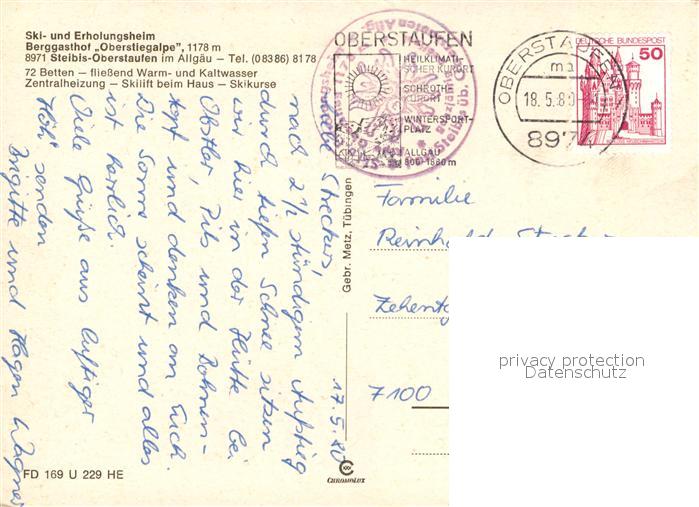 Ski- und Erholungsheim
Berggasthof „Oberstiegalpe", 1178 m
8971 Steibis-Oberstaufen im Allgäu – Tel. (08386) 8178
72 Betten – fließend Warm- und Kaltwasser
Zentralheizung – Skilift beim Haus – Skikurse
OBERSTAUFEN
HEILKLIMATI-
SCHER KURORT
SCHROTH-
KURORT
WINTERSPORT-
PLATZ
ALLGÄU
800-1680 m
OBERSTAUFEN
ma
18.5.80
8974
DEUTSCHE BUNDESPOST
50
Streckers,
nach 2 ½ stündigem Aufstieg
durch tiefen Schnee sitzen
wir hier in der Hütte bei
Obstler Pils und Bohnen-
topf und denken an Euch.
Die Sonne scheint und alles
ist herrlich.
Viele Grüße aus luftiger
Höh' senden
Brigitte und Hagen Wagner
17.5.80
Gebr. Metz, Tübingen
Familie
Reinhold
7100
privacy protection
Datenschutz
FD 169 U 229 HE
CHROMOLUX